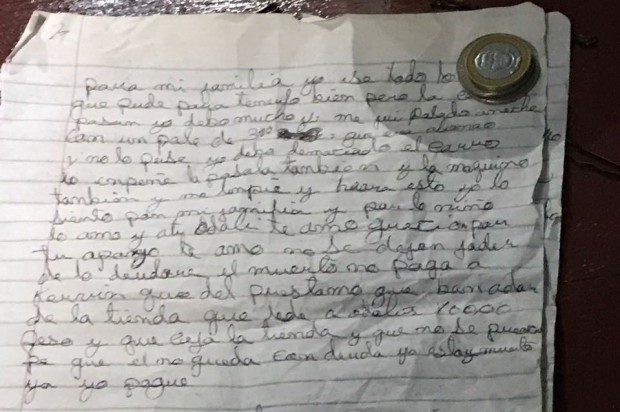 para mi familia yo ise todo lo
que pude paga tenerlo bien pero la
pasan yo debo mucho y me
con un pale de 300
y no lo puse yo debo demaciado el carro
lo enpeñe la pasola tanbien y la maquina
tanbien y me linpie y hora esto yo lo
siento pan mi familia y par lo niño
lo amo y atu te amo gracia par
tu apoyo te amo no se dejen joder
de lo deudore el muerto no paga a
que del prestamo que ban a dar
de la tienda que le de a 10000
peso y que coja la tienda y que no se preocu
pe que el no queda con deuda yo estoy muerto
ya yo pague